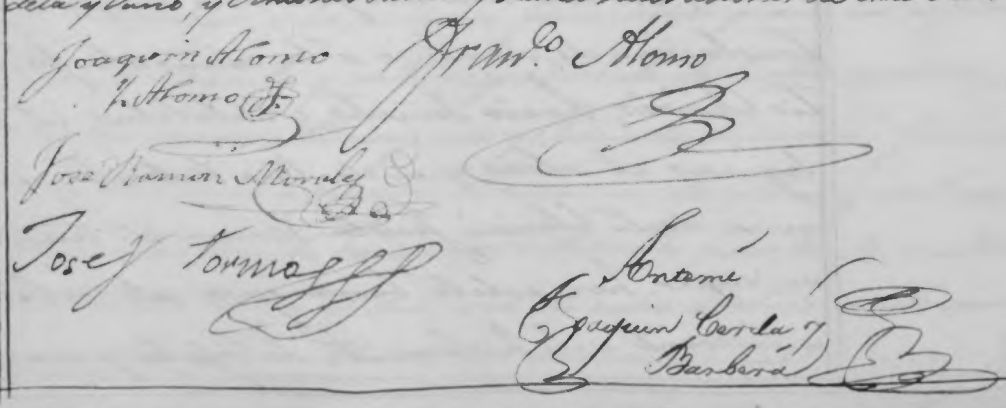 Joaquin Alonso Fran.co Alonso
y Alonso
Jose Ramon Morales
Josef Tormo
Antemi
Joaquin Cerda y
Barberá